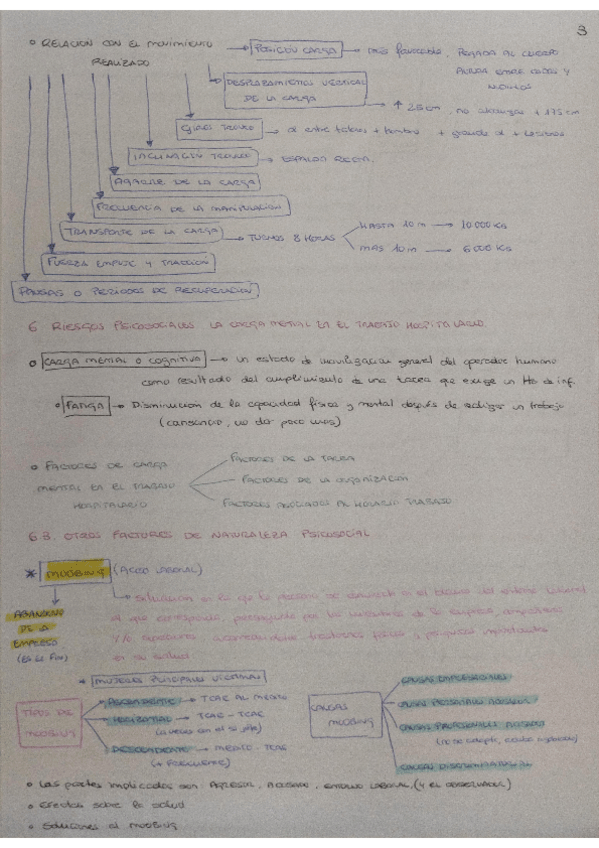 3
o RELACION CON EL MOVIMIENTO REALIZADO → POSICION CARGA → más favorable, PEGADA AL CUERPO
ALTURA ENTRE CODOS Y NUDILLOS
DESPLAZAMIENTOS VERTICAL DE LA CARGA → ↑ 25 cm, no alcanzar + 175 cm
GIROS TRONCO →
INCLINACIÓN TRONCO → ESPALDA RECTA.
AGARRE DE LA CARGA
FRECUENCIA DE LA MANIPULACION
TRANSPORTE DE LA CARGA → TURNOS 8 HORAS
HASTA 10 m → 10.000 KG
MAS 10 m → 6000 KG
FUERZA EMPUJE Y TRACCION
PAUSAS O PERIODOS DE RECUPERACION
6 RIESGOS PSICOSOCIALES LA CARGA MENTAL EN EL TRABAJO HOSPITALARIO.
o CARGA MENTAL O COGNITIVA → un estado de movilizacion general del operador humano
como resultado del cumplimiento de una tarea que exige un tto de inf.
• FATIGA → Disminucion de la capacidad fisica y mental después de realizar un trabajo
(cansancio, no dar para mas)
o FACTORES DE CARGA
MENTAL EN EL TRABAJO
HOSPITALARIO
FACTORES DE LA TAREA
FACTORES DE LA ORGANIZACION
FACTORES ASOCIADOS AL HORARIO TRABAJO
6.3. OTROS FACTORES DE NATURALEZA PSICOSOCIAL
* MOBBING (ACOSO LABORAL)
→ Situacion en la que la persona se convierte en el blanco del entorno laboral
al que corresponde,
en su salud.
ABANDONO
DE LA
EMPRESA
(Es su fin)
* MUJERES PRINCIPALES VICTIMAS
TIPOS DE
MOBBING
ASCENDENTE → TCAE AL MEDICO
HORIZONTAL → TCAE - TCAE
DESCENDENTE → MEDICO - TCAE
(+ FRECUENTE)
CAUSAS
MOBBING
CAUSAS EMPRESARIALES
CAUSAS PERSONALES ACOSADOR
CAUSAS PROFESIONALES ACOSADO
CAUSAS DISCRIMINATORIAS
o Las partes implicadas son: AGRESOR, ACOSADO, ENTORNO LABORAL, (Y EL OBSERVADOR)
o Efectos sobre la salud
o Soluciones al mobbing